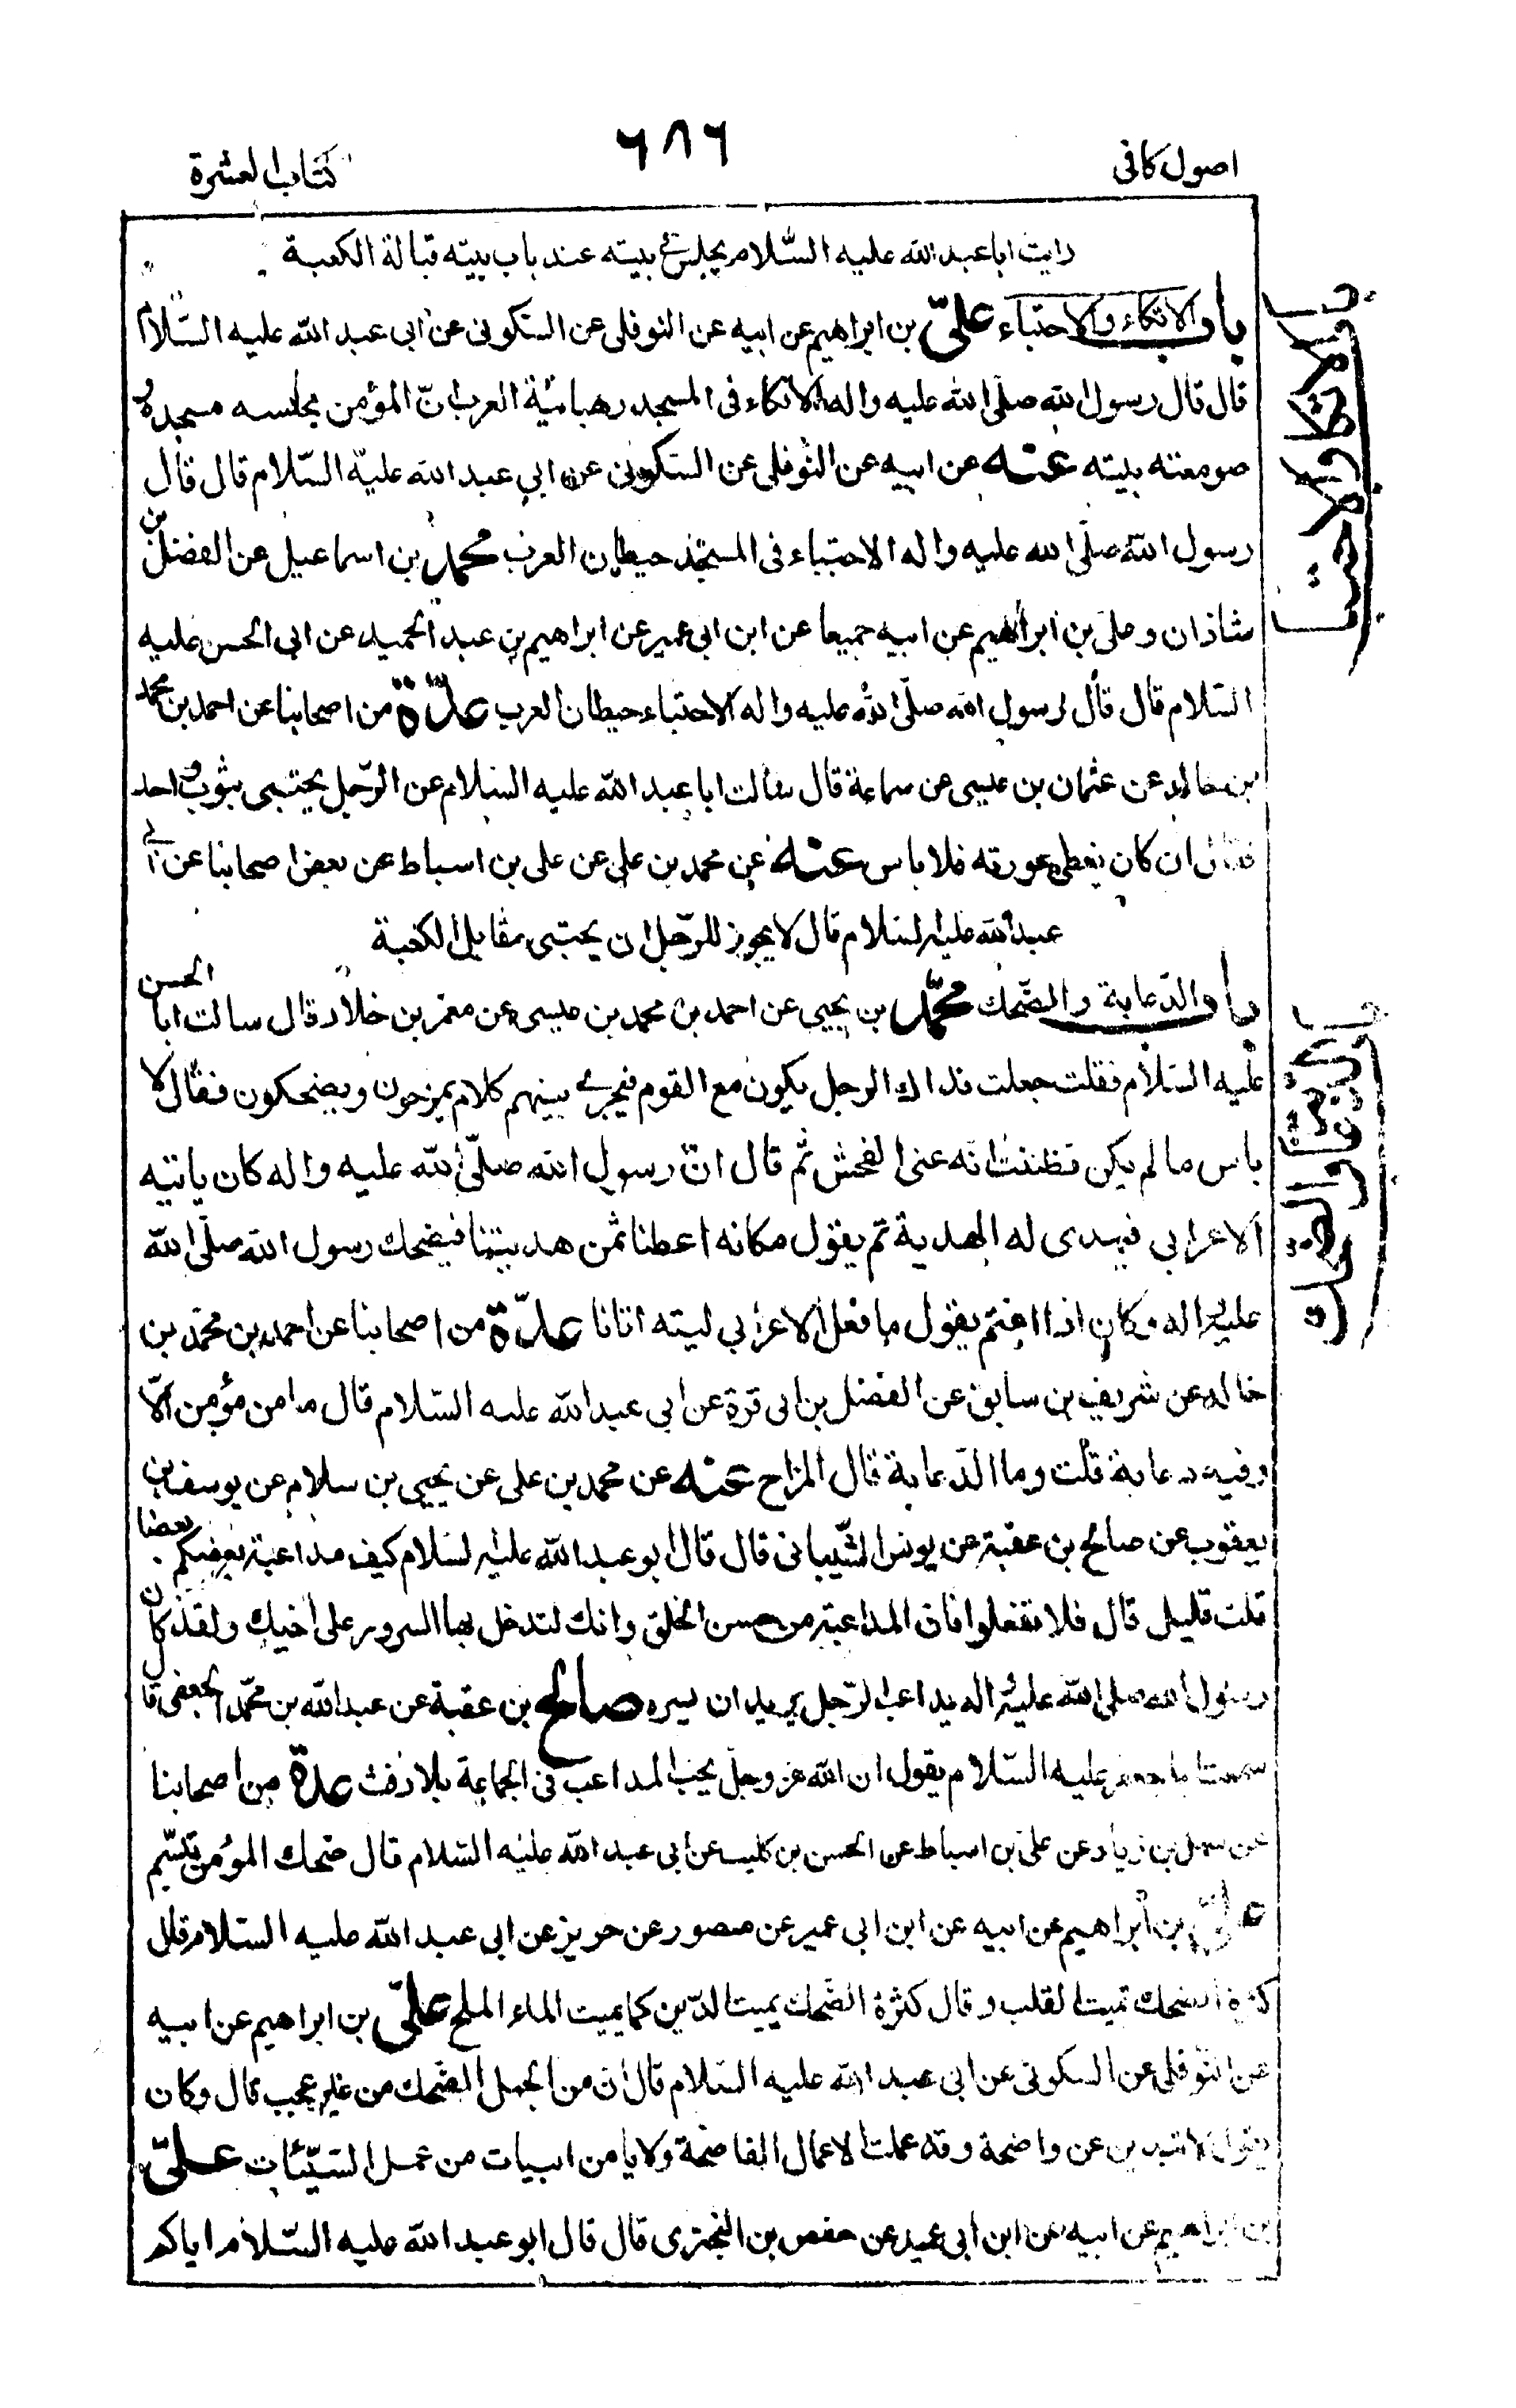 اصول كافى
٦٨٦
كتاب العشرة
رايت ابا عبد الله عليه السّلام يجلس فى بيته عند باب بيته قبالة الكعبة
باب الاتكاء والاحتباء علىّ بن ابراهيم عن ابيه عن النوفلى عن السكونى عن ابى عبد الله عليه السّلام
قال قال رسول الله صلّى الله عليه واله الاتكاء فى المسجد رهبانيّة العرب انّ المؤمن مجلسه مسجده و
صومعته بيته عنه عن ابيه عن النوفلى عن السكونى عن ابى عبد الله عليه السّلام قال قال
رسول الله صلّى الله عليه واله الاحتباء فى المسجد حيطان العرب محمد بن اسماعيل عن الفضل بن
شاذان وعلى بن ابراهيم عن ابيه جميعا عن ابن ابى عمير عن ابراهيم بن عبد الحميد عن ابى الحسن عليه
السّلام قال قال رسول الله صلّى الله عليه واله الاحتباء حيطان العرب عدّة من اصحابنا عن احمد بن محمد
بن خالد عن عثمان بن عيسى عن سماعة قال سالت ابا عبد الله عليه السّلام عن الرّجل يحتبى بثوب واحد
فقال ان كان يغطى عورته فلا باس عنه عن محمد بن على عن على بن اسباط عن بعض اصحابنا عن ابى
عبد الله عليه السلام قال لا يجوز للرّجل ان يحتبى مقابل الكعبة
باب الدّعابة والضّحك محمّد بن يحيى عن احمد بن محمد بن عيسى عن معمر بن خلاد قال سالت ابا الحسن
عليه السّلام فقلت جعلت فداك الرجل يكون مع القوم فيجرى بينهم كلام يمزحون ويضحكون فقال لا
باس ما لم يكن فظننت انه عنى الفحش ثم قال انّ رسول الله صلّى الله عليه واله كان ياتيه
الاعرابى فيهدى له الهدية ثم يقول مكانه اعطنا ثمن هديتنا فيضحك رسول الله صلّى الله
عليه واله وكان اذا اغتم يقول ما فعل الاعرابى ليته اتانا عدّة من اصحابنا عن احمد بن محمّد بن
خالد عن شريف بن سابق عن الفضل بن ابى قرة عن ابى عبد الله عليه السّلام قال ما من مؤمن الّا
وفيه دعابة قلت وما الدّعابة قال المزاح عنه عن محمد بن على عن يحيى بن سلام عن يوسف بن
يعقوب عن صالح بن عقبة عن يونس الشّيبانى قال قال ابو عبد الله عليه السلام كيف مداعبة بعضكم بعضا
قلت قليل قال فلا تفعلوا فان المداعبة من حسن الخلق وانك لتدخل بها السرور على اخيك ولقد كان
رسول الله صلى الله عليه واله يداعب الرّجل يريد ان يسره صالح بن عقبة عن عبد الله بن محمّد الجعفى قال
سمعت ابا جعفر عليه السّلام يقول ان الله عز وجلّ يحب المداعب فى الجماعة بلا رفث عدة من اصحابنا
عن سهل بن زياد عن على بن اسباط عن الحسن بن كليب عن ابى عبد الله عليه السّلام قال ضحك المؤمن تبسّم
علىّ بن ابراهيم عن ابيه عن ابن ابى عمير عن منصور عن حريز عن ابى عبد الله عليه السّلام قال
كثرة الضحك تميت القلب وقال كثرة الضّحك يميت الدّين كما يميت الماء الملح علىّ بن ابراهيم عن ابيه
عن النّوفلى عن السكونى عن ابى عبد الله عليه السّلام قال ان من الجهل الضّحك من غير عجب قال وكان
يقول لا تبدين عن واضحة وقد عملت الاعمال الفاضحة ولا يامن البيات من عمل السّيّئات علىّ
بن ابراهيم عن ابيه عن ابن ابى عمير عن حفص بن البخترى قال قال ابو عبد الله عليه السّلام اياكم
باب الاتكاء والاحتباء
باب الدعابة والضحك